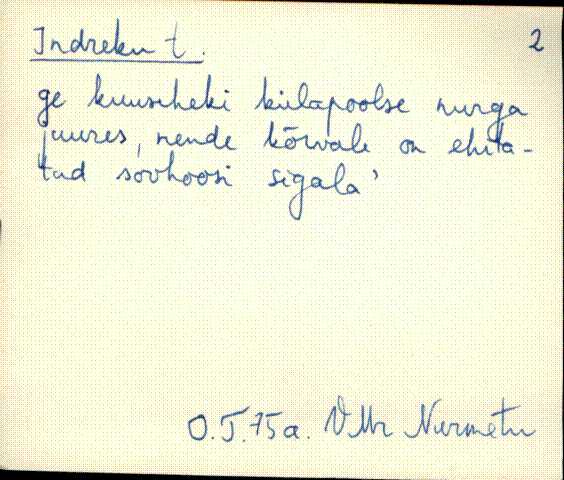 Indreku t. 2
ge kuuseheki külapoolse nurga
juures, nende kõrvale on ehita-
tud sovhoosi sigala'
O.J. 75a. VMr Nurmetu